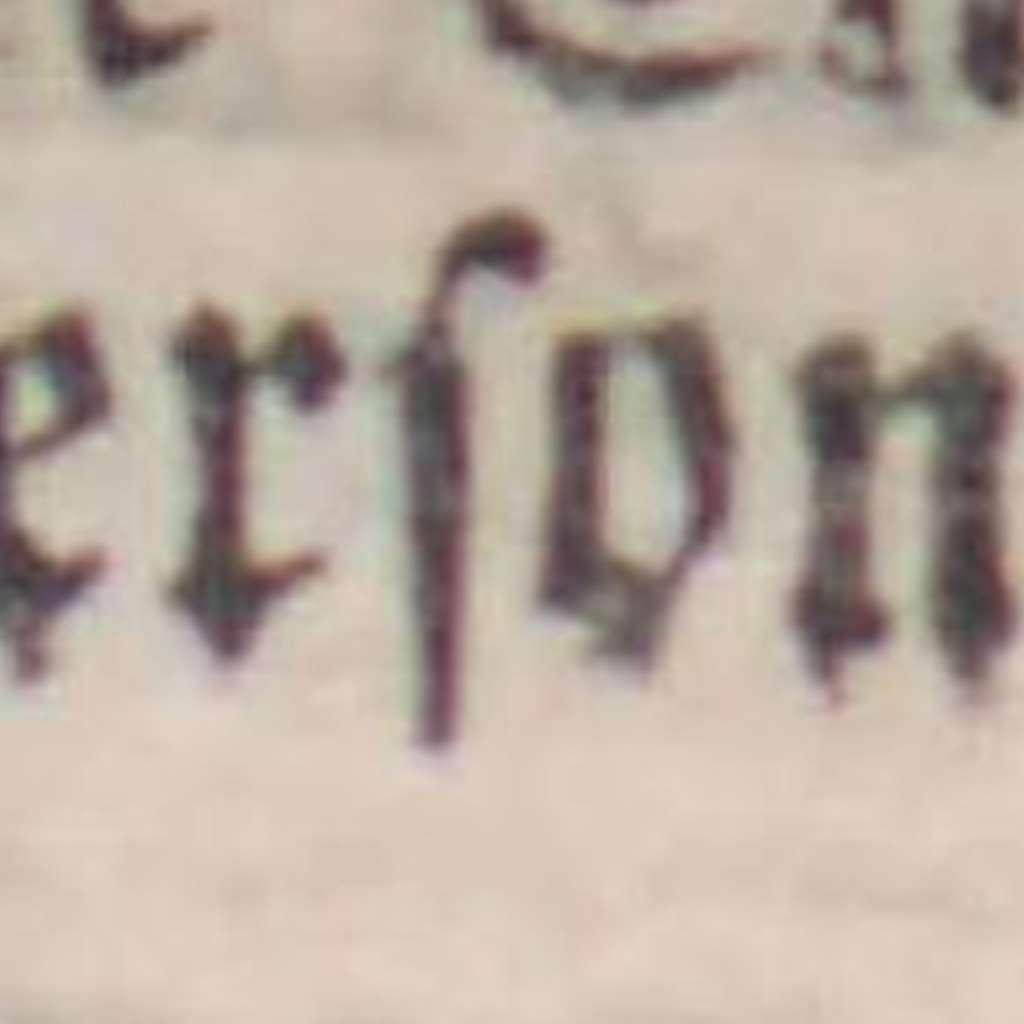 erſon